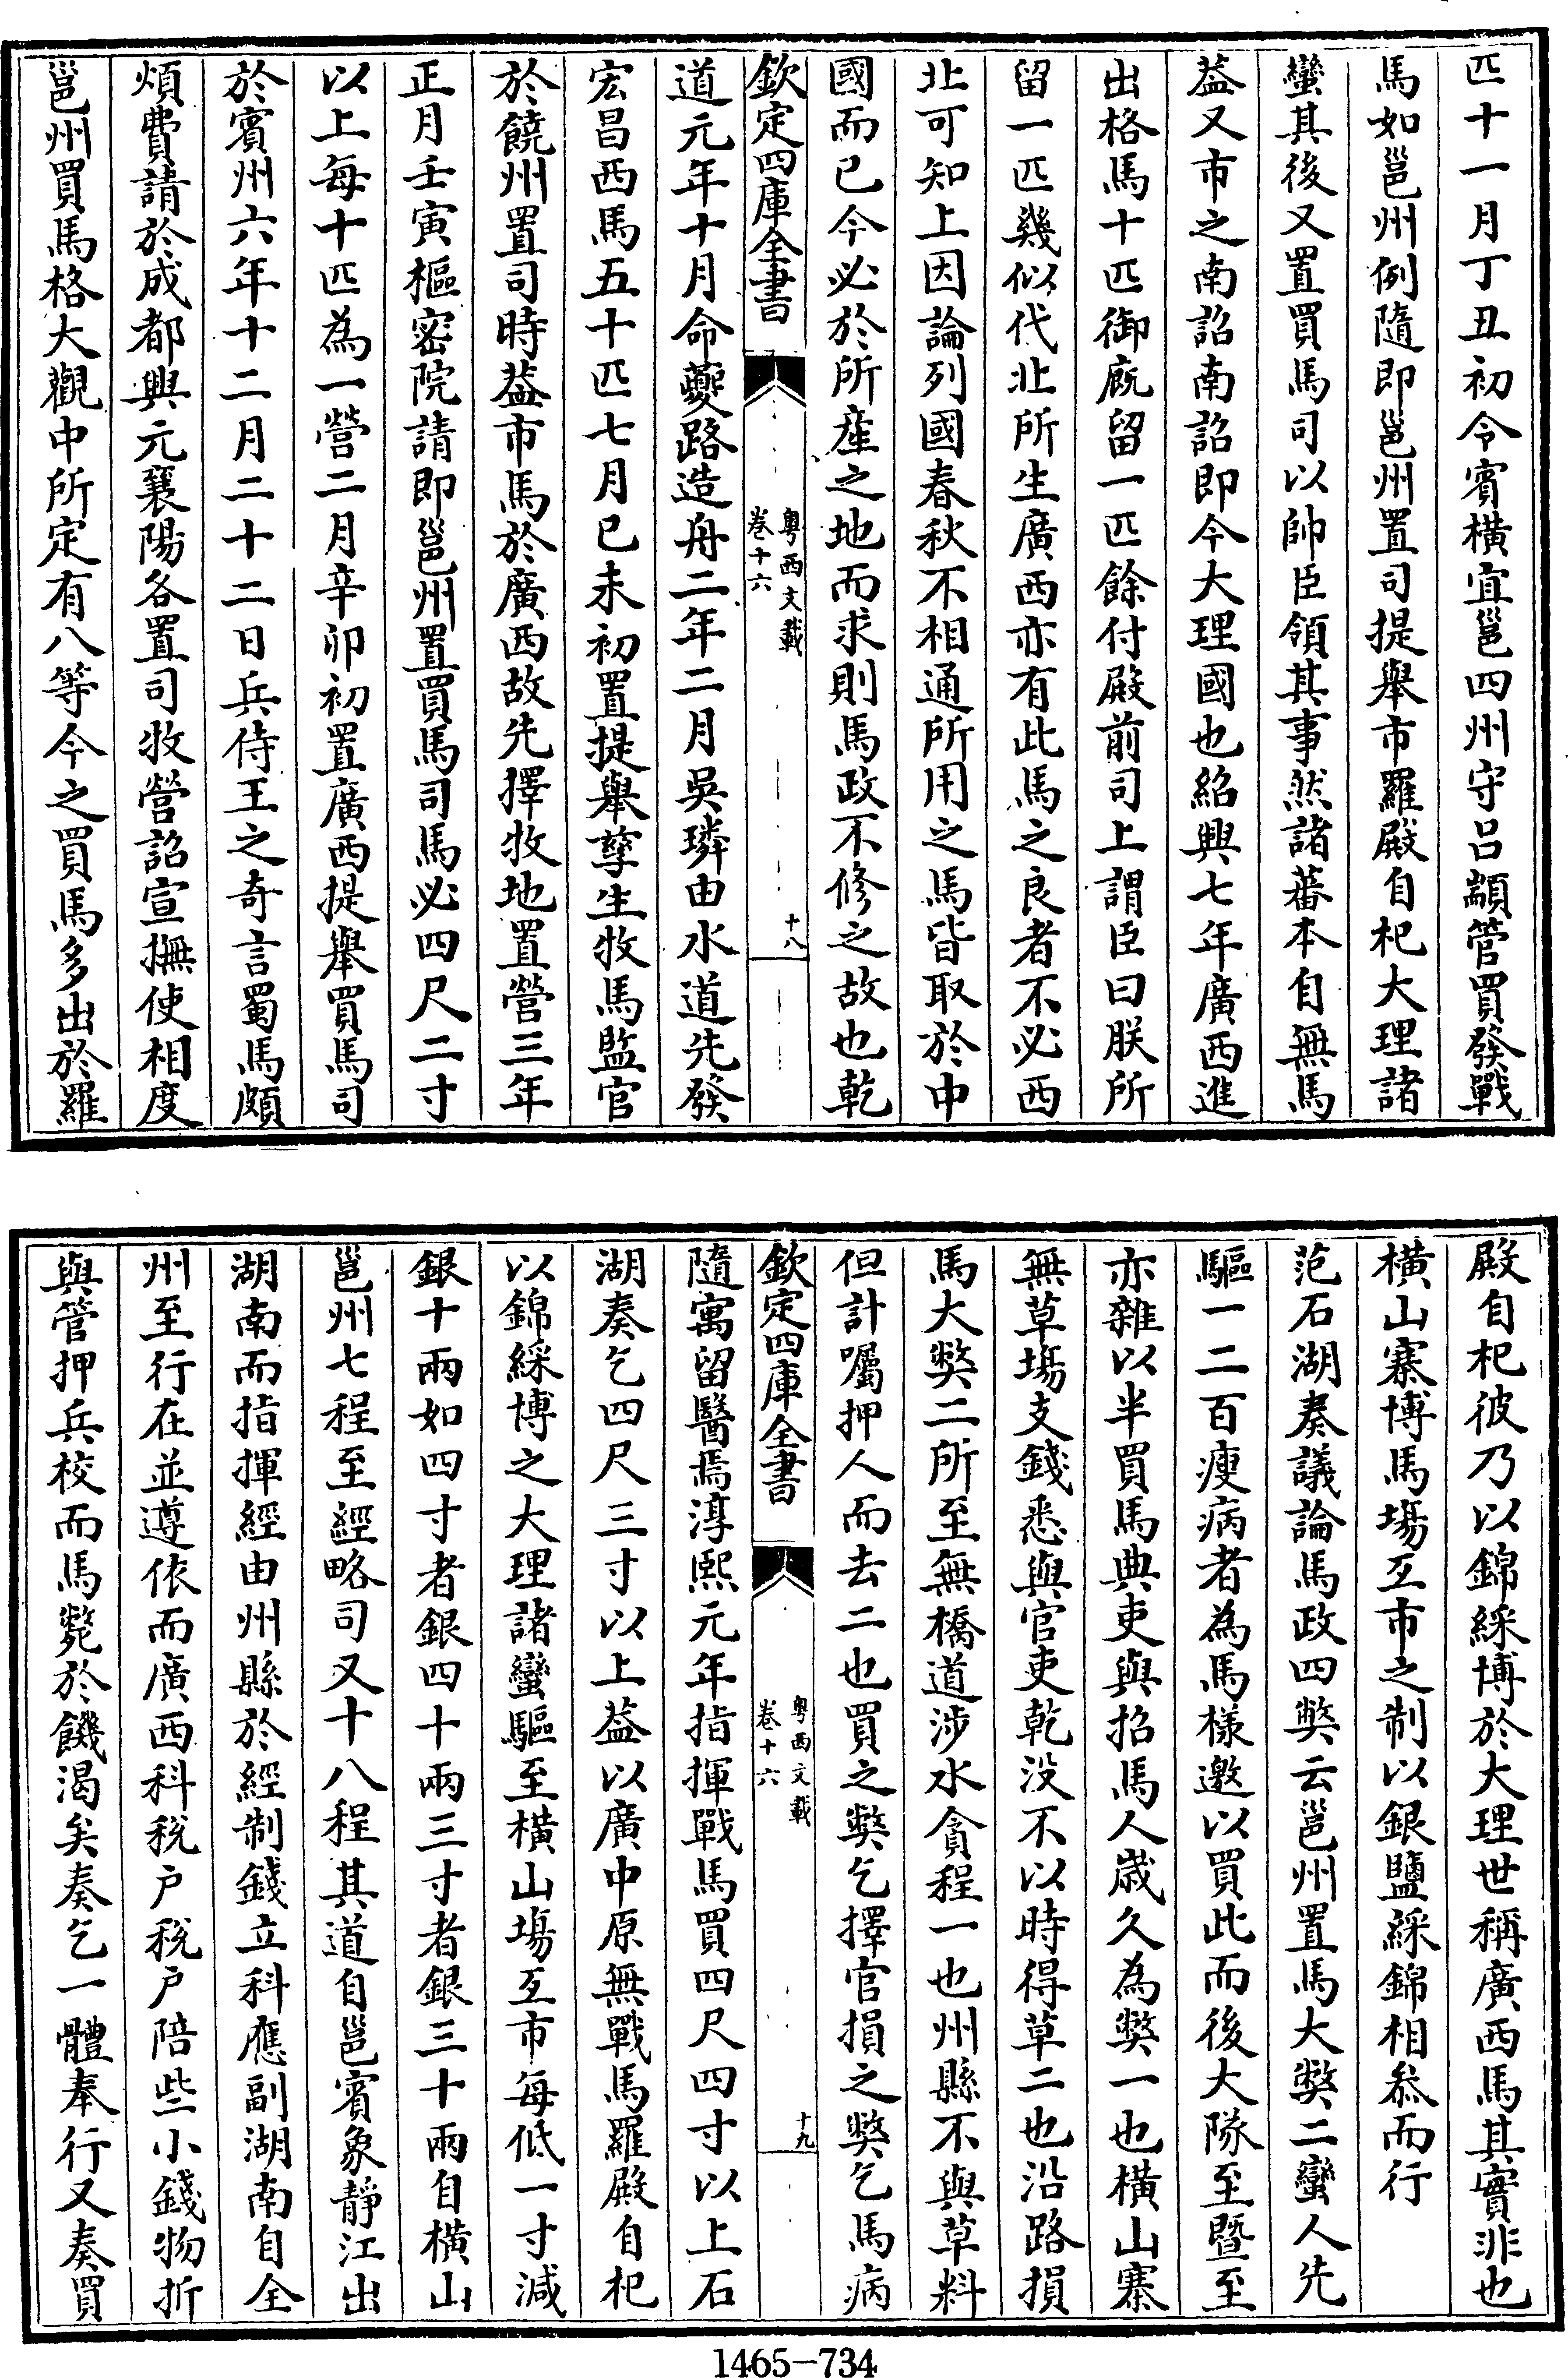 匹十一月丁丑初令賓橫宜邕四州守呂顓管買發戰
馬如邕州例隨即邕州置司提舉市羅殿自杞大理諸
蠻其後又置買馬司以帥臣領其事然諸蕃本自無馬
葢又市之南詔南詔即今大理國也紹興七年廣西進
出格馬十匹御廐留一匹餘付殿前司上謂臣曰朕所
留一匹幾似代北所生廣西亦有此馬之良者不必西
北可知上因論列國春秋不相通所用之馬皆取於中
國而已今必於所產之地而求則馬政不修之故也乾
欽定四庫全書
粵西文載
卷十六
十八
道元年十月命夔路造舟二年二月吳璘由水道先發
宏昌西馬五十匹七月已未初置提舉孳生牧馬監官
於饒州置司時葢市馬於廣西故先擇牧地置營三年
正月壬寅樞密院請即邕州置買馬司馬必四尺二寸
以上每十匹為一營二月辛卯初置廣西提舉買馬司
於賓州六年十二月二十二日兵侍王之奇言蜀馬頗
煩費請於成都興元襄陽各置司牧營詔宣撫使相度
邕州買馬格大觀中所定有八等今之買馬多出於羅
殿自杞彼乃以錦綵博於大理世稱廣西馬其實非也
橫山寨博馬塲互市之制以銀鹽綵錦相叅而行
范石湖奏議論馬政四獘云邕州置馬大獘二蠻人先
驅一二百瘦病者為馬樣邀以買此而後大隊至暨至
亦雜以半買馬典吏與招馬人歲久為獘一也橫山寨
無草塲支錢悉與官吏乾没不以時得草二也沿路損
馬大獘二所至無橋道涉水貪程一也州縣不與草料
但計囑押人而去二也買之獘乞擇官損之獘乞馬病
欽定四庫全書
粵西文載
卷十六
十九
隨寓留醫焉淳熙元年指揮戰馬買四尺四寸以上石
湖奏乞四尺三寸以上葢以廣中原無戰馬羅殿自杞
以錦綵博之大理諸蠻驅至橫山塲互市每低一寸減
銀十兩如四寸者銀四十兩三寸者銀三十兩自橫山
邕州七程至經略司又十八程其道自邕賓象靜江出
湖南而指揮經由州縣於經制錢立科應副湖南自全
州至行在並遵依而廣西科稅户稅户陪些小錢物折
與管押兵校而馬斃於饑渴矣奏乞一體奉行又奏買
1465-734